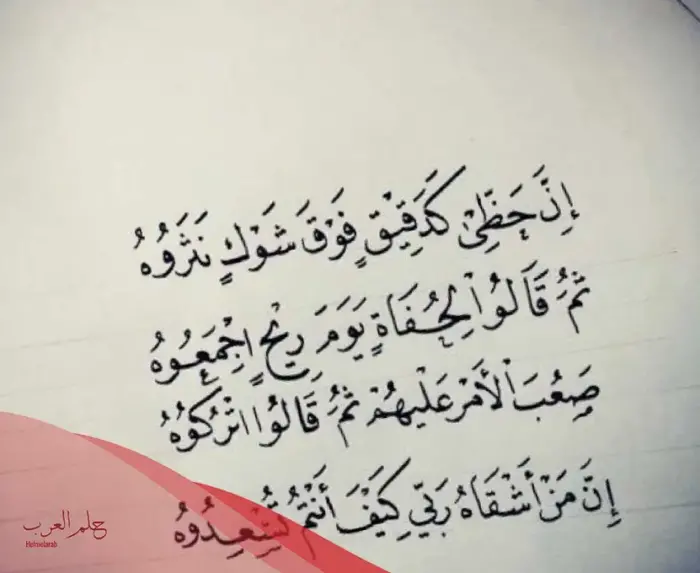 إِنَّ حَظِّيْ كَدَقِيْقٍ فَوْقَ شَوْكٍ نَثَرُوهُ
ثُمَّ قَالُوْا لِحُفَاةٍ يَوْمَ رِيْحٍ اِجْمَعُوهُ
صَعُبَ الْأَمْرُ عَلَيْهُمْ ثُمَّ قَالُوا اتْرُكُوُهُ
إِنَّ مَنْ أَشْقَاهُ رَبِّي كِيَفَ أَنْتُمْ تُسْعِدُوُهُ
حلم العرب
Helmelarab